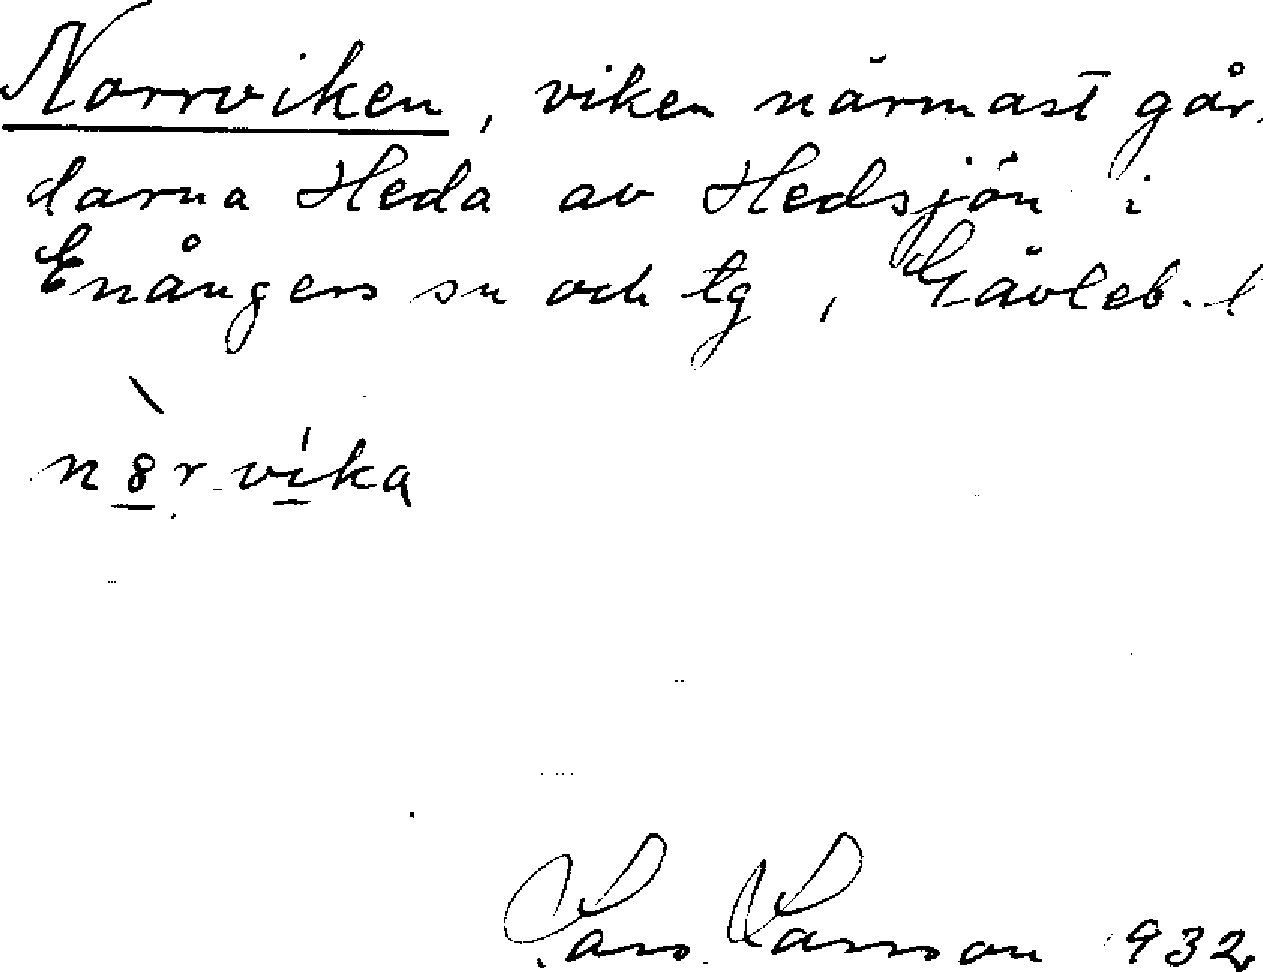 Norrviken, viken närmast går-
darna Heda av Hedsjön i
Enångers sn och tg, Gävleb. l
n8rvika
Lars Larsson 932